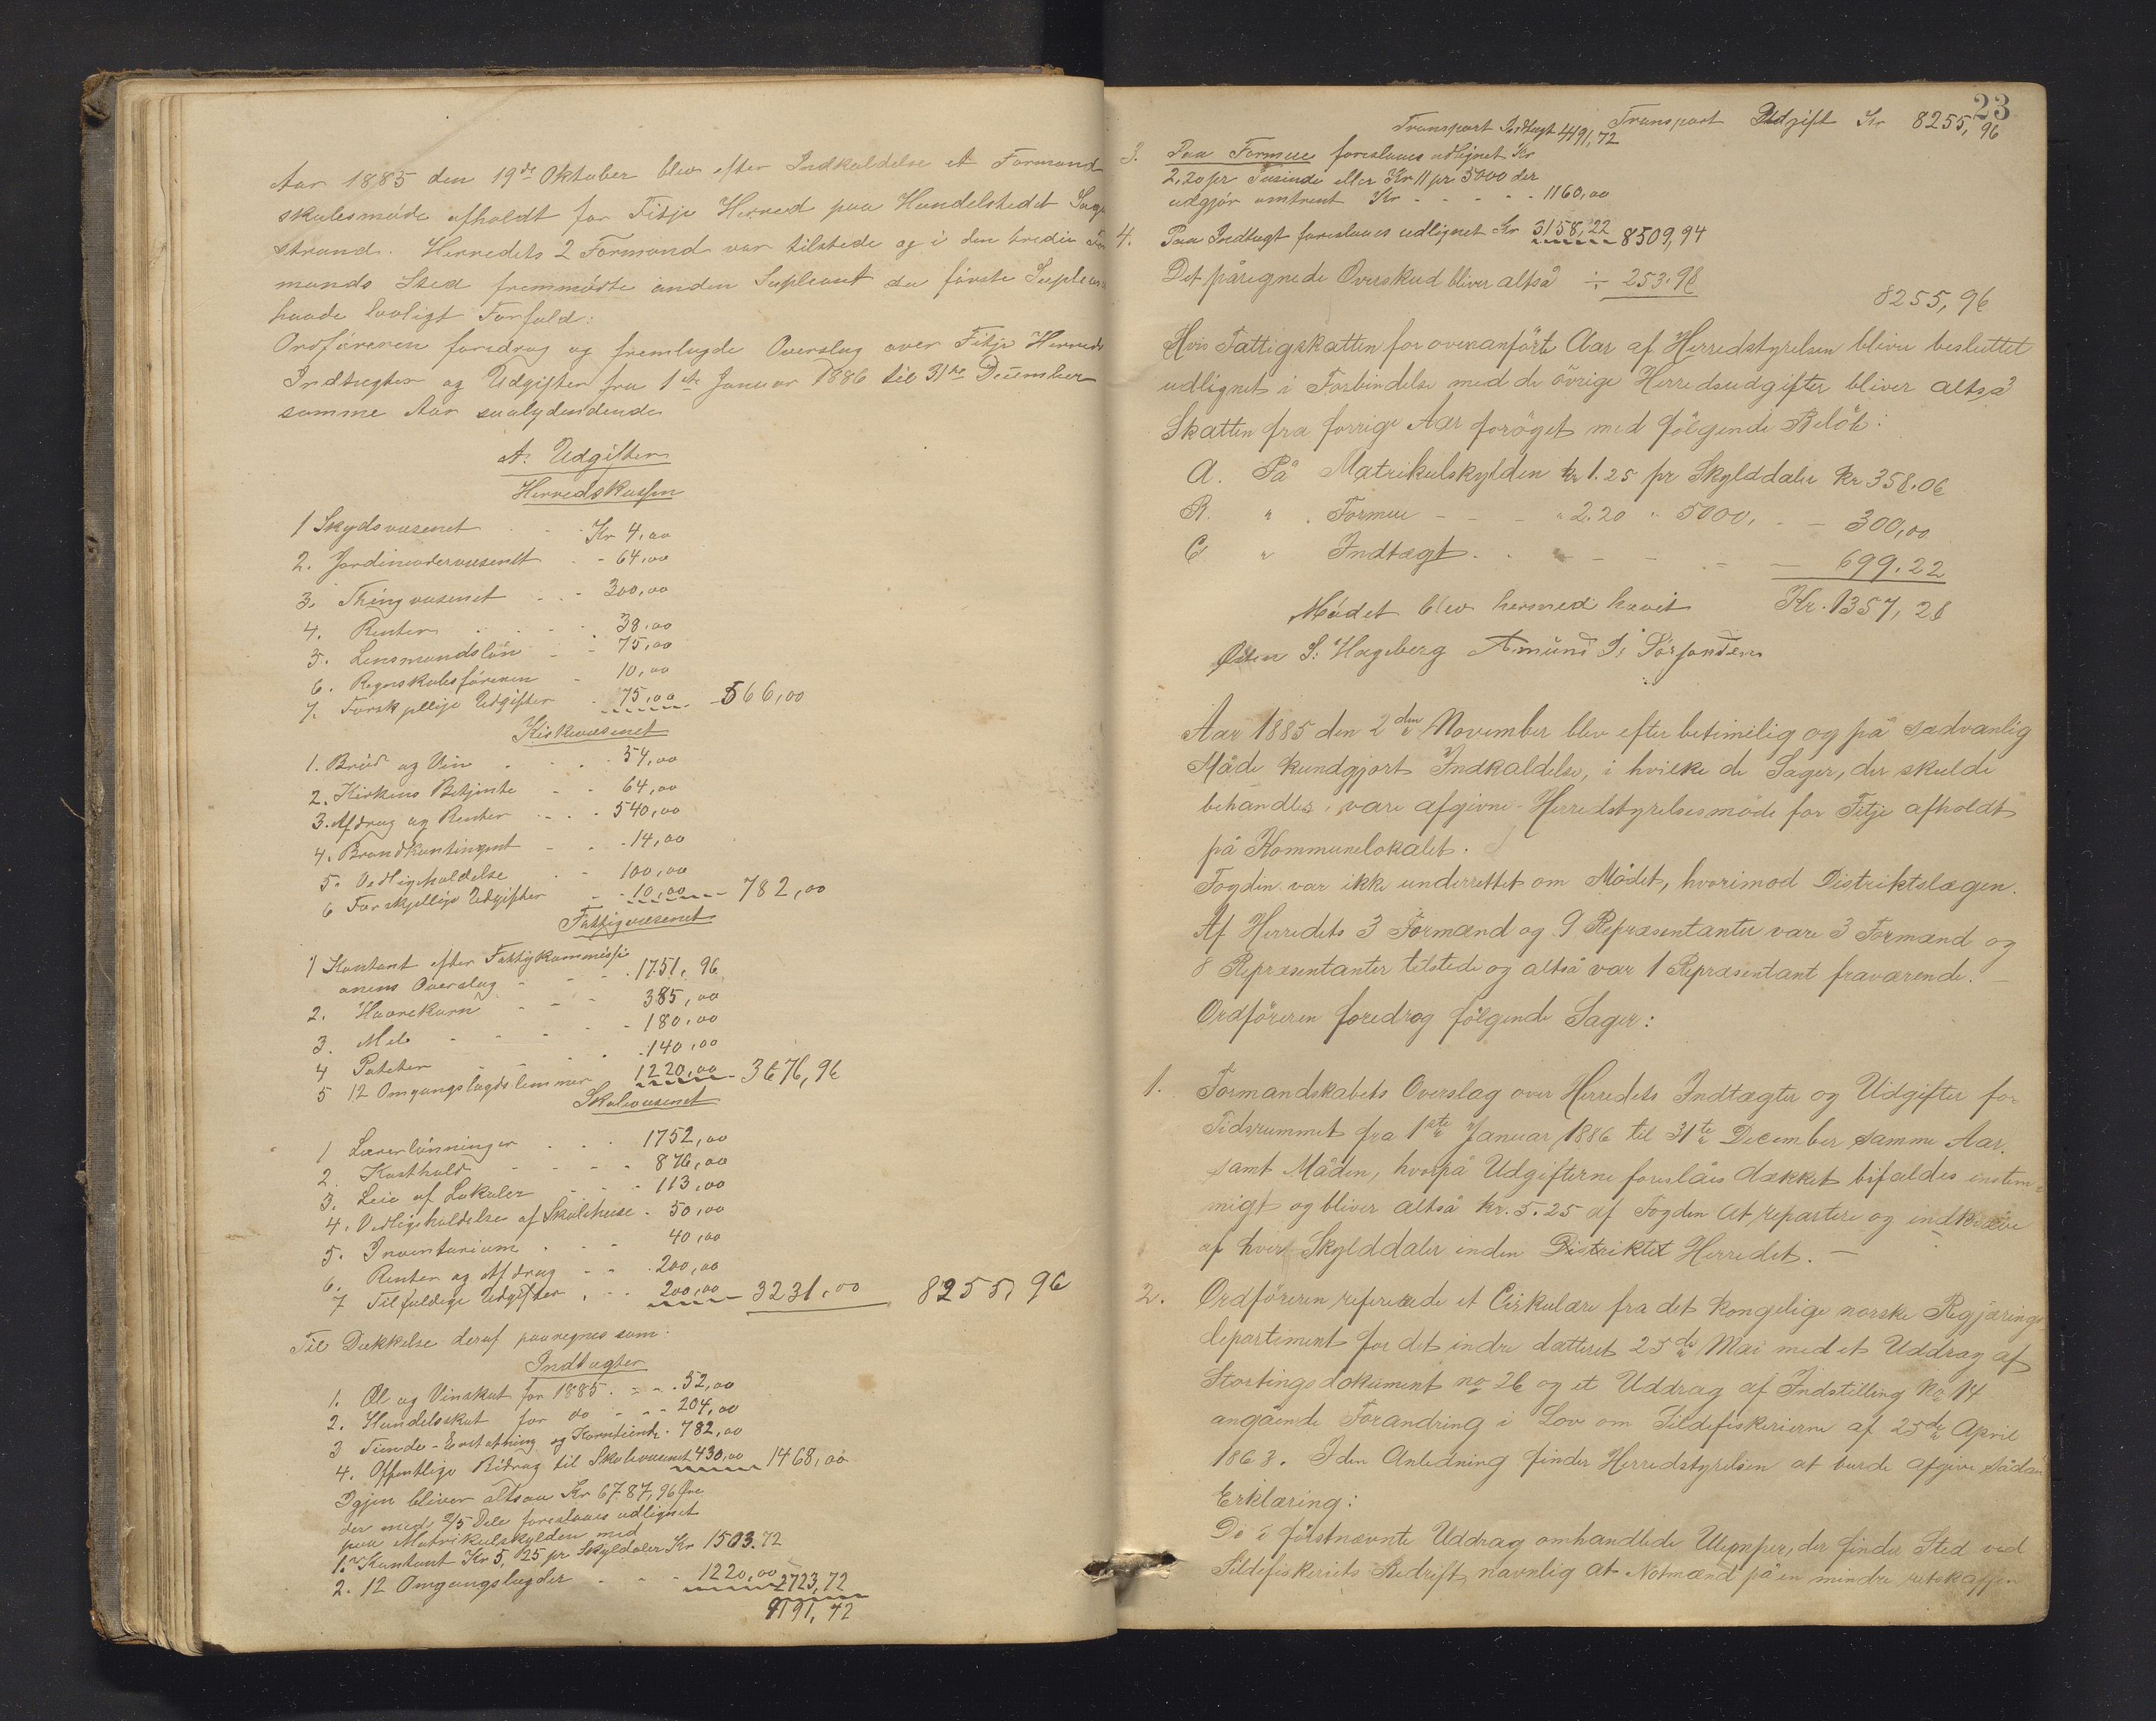 Aar 1885 den 19de Oktober blev efter Indkaldelse et Formand
skabsmöde afholdt for Fitje Herred paa Handelstedet Sag
strand. Herredets 2 Formænd var tilstede og i den tredie For
mands Sted fremmödte anden Supleant da förste Supleant
havde lovligt Forfald:
Ordföreren foredrog og fremlagde Overslag over Fitje Herreds
Indtægter og Udgifter fra 1ste Januar 1886 til 31te December
samme Aar saalydendende
A. Udgifter
Herredskassen
1 Skydsvæsenet - - Kr 4,00
2. Jordmodervæsenet - - 64,00
3. Thingvæsenet - - 300,00
4. Renter - - 38,00
5. Lensmandslön - - 75,00
6. Regnskabsföreren - 10,00
7. Forskjellige Udgifter - 75,00 - 566,00
Kirkevæsenet
1. Bröd og Vin - - 54,00
2. Kirkens Betjente - - 64,00
3. Afdrag og Renter - - 540,00
4. Brandkontingent - - 14,00
5. Vedligeholdelse - - 100,00
6 Forskjellige Udgifter - - 10,00 - 782,00
Fattigvæsenet
1 Kontant efter Fattigkommissi
onens Overslag - - 1751,96
2. Havrekorn - - 385,00
3. Mel - - 180,00
4 Poteter - - 140,00
5 12 Omgangslægdslemmer 1220,00 - 3676,96
Skolevæsenet
1 Lærerlönninger - - 1752,00
2. Kosthold - - 876,00
3. Leie af Lokaler - - 113,00
4. Vedligeholdelse af Skolehuse - 50,00
5. Inventarium - - 40,00
6. Renter og Afdrag - - 200,00
7 Tilfældige Udgifter - - 200,00 - 3231,00 8255,96
Til Dækkelse deraf paaregnes som:
Indtægter
1. Öl og Vinskat for 1885 - - 52,00
2. Handelsskat for do - - 204,00
3 Tiende-Erstatning og Korntiende - 782,00
4. Offentlige Bidrag til Skolevæsenet 430,00 1468,00
Igjen bliver altsaa Kr 6787,96 Öre
der med 2/5 Dele foreslaaes udlignet
paa Matrikulskylden med
1. Kontant Kr 5,25 pr Skylddaler Kr 1503.72
2. 12 Omgangslægder - - 1220,00 2723,72
4191,72
23
Transport Indtægt 4191,72 Transport Udgift Kr 8255,96
3. Paa Formue foreslaaes udlignet Kr
2,20 pr Tusinde eller Kr 11 pr 5000 der
udgjör omtrent Kr - - - 1160,00
4. Paa Indtægt foreslaaes udlignet Kr 3158,22 8509,94
Det påregnede Overskud bliver altså ÷ 253.98
8255,96
Hvis Fattigskatten for ovenanförte Aar af Herredstyrelsen bliver besluttet
udlignet i Forbindelse med de övrige Herredsudgifter bliver altså
Skatten fra forrige Aar foröget med fölgende Belöb:
A. På Matrikulskylden kr 1.25 pr Skylddaler kr 358.06
B. " Formue - - - " 2.20 " 5000, - - 300,00
C " Indtægt - - - - 699.22
Mödet blev hermed hævet Kr. 1357,28
Østen S. Hageberg Amund I. Sörfonden
Aar 1885 den 2den November blev efter betimelig og på sædvanlig
Måde kundgjort Indkaldelse, i hvilke de Sager, der skulde
behandles, vare afgivne - Herredstyrelsesmöde for Fitje afholdt
på Kommunelokalet.
Fogden var ikke underrettet om Mödet, hvorimod Distriktslægen.
Af Herredets 3 Formænd og 9 Repræsentanter vare 3 Formænd og
8 Repræsentanter tilstede og altså var 1 Repræsentant fraværende. -
Ordföreren foredrog fölgende Sager:
1. Formandskabets Overslag over Herredets Indtægter og Udgifter for
Tidsrummet fra 1ste Januar 1886 til 31te December samme Aar.
samt Måden, hvorpå Udgifterne foreslåes dækket bifaldes enstem
migt og bliver altså kr. 5.25 af Fogden at repartere og indkræve
af hver Skylddaler inden Distriktet Herredet. -
2. Ordföreren refererede et Cirkulære fra det kongelige norske Regjærings
departiment for det indre datteret 25de Mai med et Uddrag af
Stortingsdokument no 26 og et Uddrag af Indstilling No 14
angående Forandring i Lov om Sildefiskerierne af 25de April
1863. I den Anledning finder Herredstyrelsen at burde afgive sådan
Erklæring:
De i förstnævnte Uddrag omhandlede Ulemper, der finder Sted ved
Sildefiskeriets Bedrift, navnlig at Notmænd på en mindre retskaffen